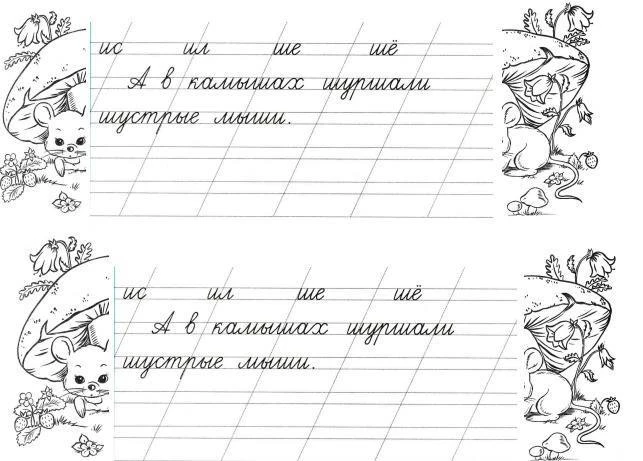 ис ил ше шё
А в камышах шуршали
шустрые мыши.
ис ил ше шё
А в камышах шуршали
шустрые мыши.